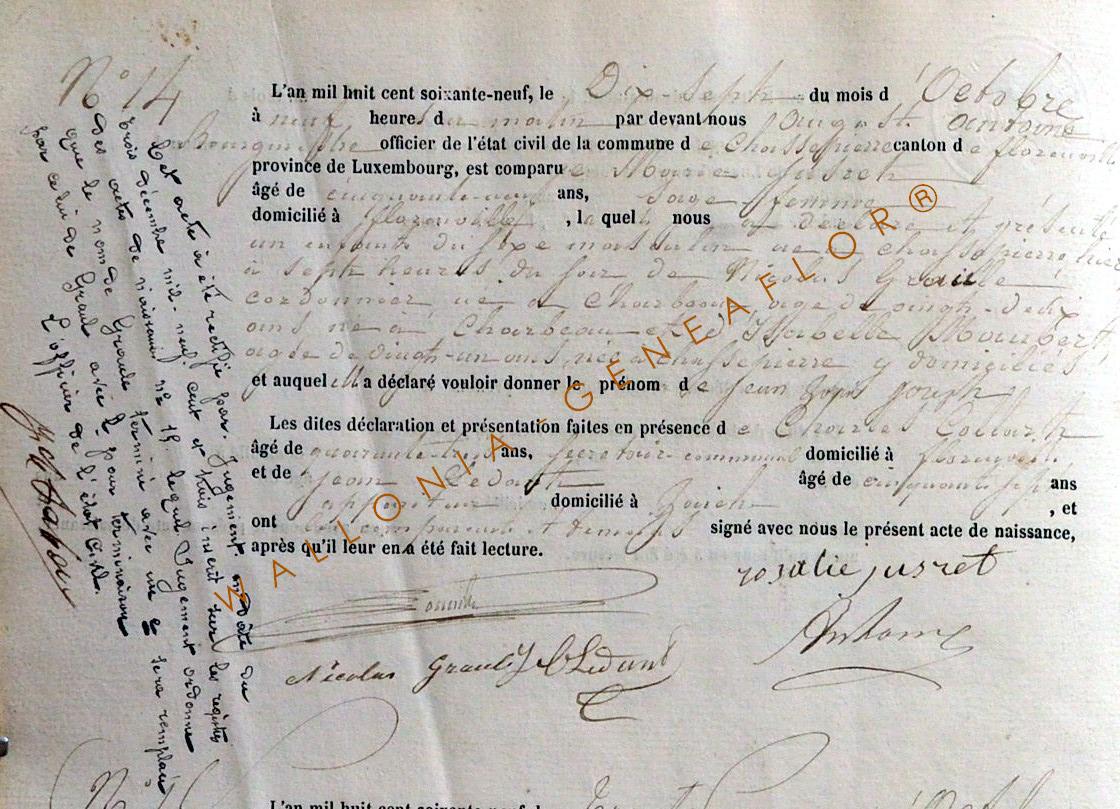 N° 14
L'an mil huit cent soixante-neuf, le Dix-Sept du mois d'Octobre
à neuf heures d du matin par devant nous August Antoine
officier de l'état civil de la commune de Chassepierre canton de florenville
province de Luxembourg, est comparu Marie Jusret
âgé de cinquante-neuf ans, Sage femme
domicilié à florenville, laquel nous a déclaré et présenté
un enfant du sexe masculin né à chassepierre hier
à sept heures du soir de Nicolas Graule
cordonnier né à Charbeau agé de vingt-deux
ans né à Charbeau et d'Isabelle Maubert
agée de vingt-un ans, née à chassepierre y domiciliés
et auquel elle a déclaré vouloir donner le prénom de Jean joseph
Les dites déclaration et présentation faites en présence de Charles Collart
âgé de quarante-trois ans, secrétaire communal domicilié à
et de Jean Ledant âgé de cinquante-sept ans
domicilié à , et
ont comparants et témoins signé avec nous le présent acte de naissance,
après qu'il leur en a été fait lecture.
rosalie jusret
Antoine
Nicolas Graulé J Ledant
Cet acte a été rectifié par Jugement en date du
trois décembre mil-neuf cent et trois inscrit sur les registres
des actes de naissance N° 19. lequel Jugement ordonne
que le nom de Graule terminé avec un e sera remplacé
par celui de Graulé avec é pour terminaison
L'officier de l'état Civil.
WALLONIA-GENEAFLOR®
L'an mil huit cent soixante-neuf, le